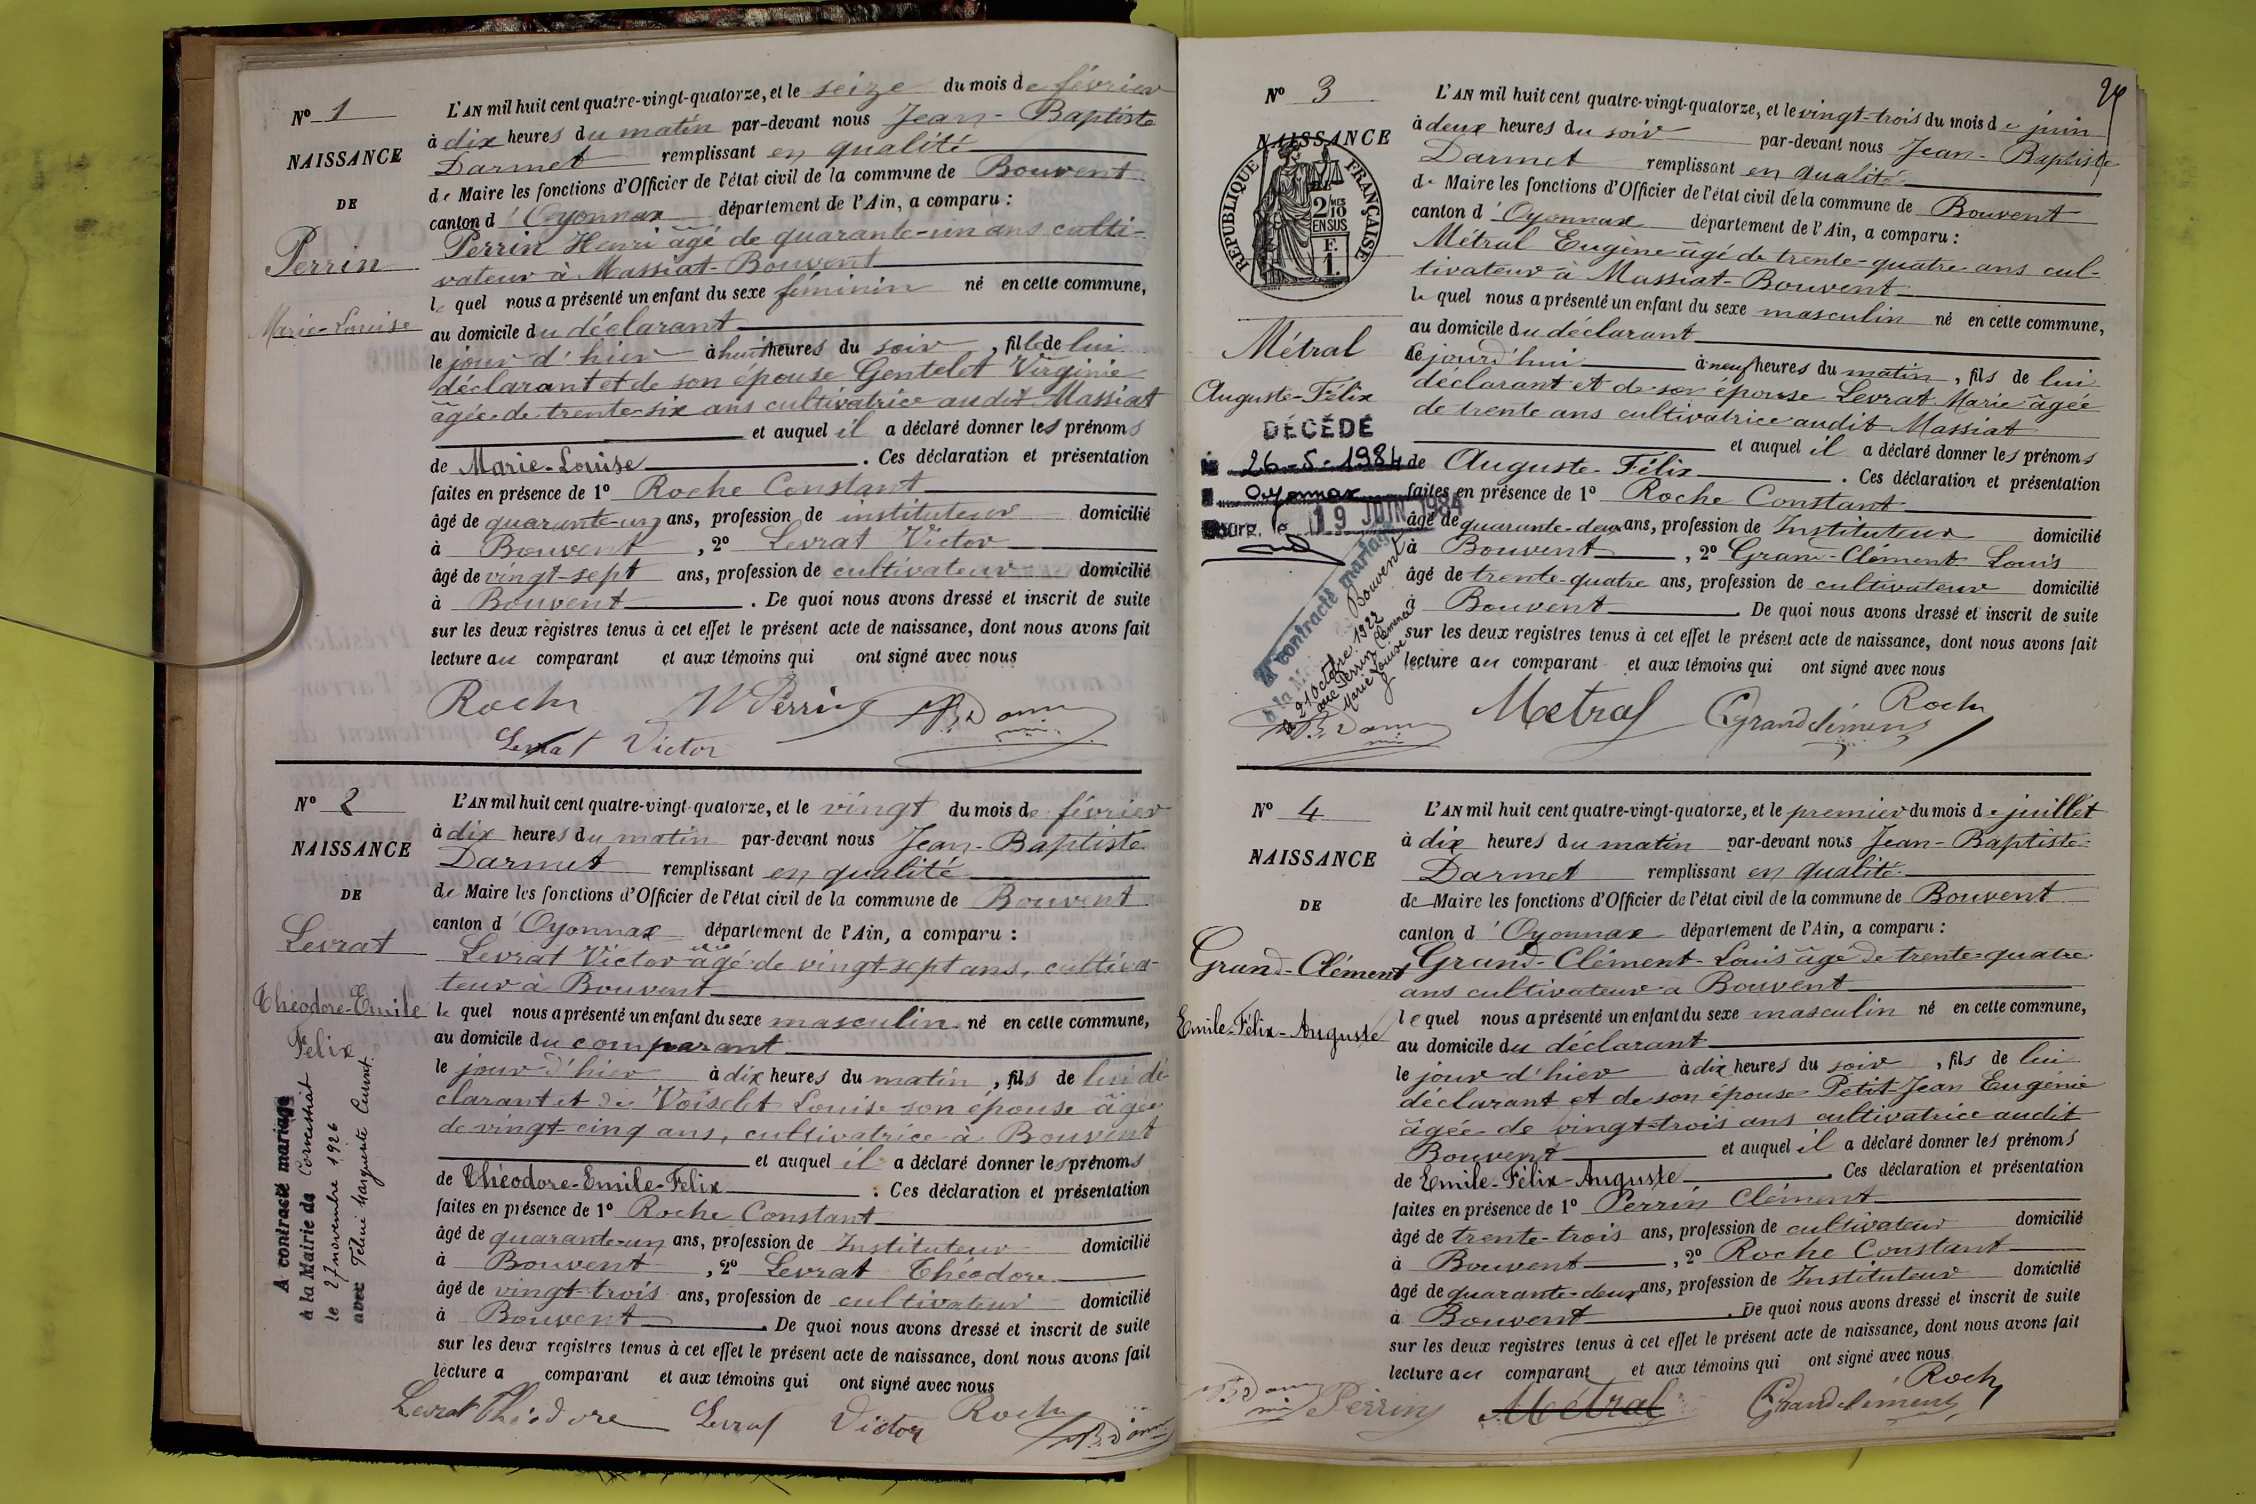 N° 1
NAISSANCE
DE
Perrin
Marie-Louise
L'AN mil huit cent quatre-vingt-quatorze, et le seize du mois de février
à dix heures du matin par-devant nous Jean-Baptiste
Darmet remplissant en qualité
de Maire les fonctions d'Officier de l'état civil de la commune de Bouvent
canton d'Oyonnax département de l'Ain, a comparu :
Perrin Henri âgé de quarante-un ans culti-
vateur à Massiat-Bouvent
lequel nous a présenté un enfant du sexe féminin né en cette commune,
au domicile du déclarant
le jour d'hier à huit heures du soir, fille de lui
déclarant et de son épouse Gentelet Virginie
âgée de trente-six ans cultivatrice audit Massiat
et auquel il a déclaré donner les prénoms
de Marie-Louise. Ces déclaration et présentation
faites en présence de 1° Roche Constant
âgé de quarante-un ans, profession de instituteur domicilié
à Bouvent, 2° Levrat Victor
âgé de vingt-sept ans, profession de cultivateur domicilié
à Bouvent. De quoi nous avons dressé et inscrit de suite
sur les deux registres tenus à cet effet le présent acte de naissance, dont nous avons fait
lecture au comparant et aux témoins qui ont signé avec nous
Roche Perrin
Levrat Victor
N° 2
NAISSANCE
DE
Levrat
Théodore-Emile
Félix
A contracté mariage
à la Mairie de
le 27 novembre 1926
avec Marguerite
L'AN mil huit cent quatre-vingt-quatorze, et le vingt du mois de février
à dix heures du matin par-devant nous Jean-Baptiste
Darmet remplissant en qualité
de Maire les fonctions d'Officier de l'état civil de la commune de Bouvent
canton d'Oyonnax département de l'Ain, a comparu :
Levrat Victor âgé de vingt-sept ans, cultiva-
teur à Bouvent
lequel nous a présenté un enfant du sexe masculin né en cette commune,
au domicile du comparant
le jour d'hier à dix heures du matin, fils de lui dé-
clarant et de Voiselet Louise son épouse âgée
de vingt-cinq ans, cultivatrice à Bouvent
et auquel il a déclaré donner les prénoms
de Théodore-Emile-Félix. Ces déclaration et présentation
faites en présence de 1° Roche Constant
âgé de quarante-un ans, profession de Instituteur domicilié
à Bouvent, 2° Levrat Théodore
âgé de vingt-trois ans, profession de cultivateur domicilié
à Bouvent. De quoi nous avons dressé et inscrit de suite
sur les deux registres tenus à cet effet le présent acte de naissance, dont nous avons fait
lecture a comparant et aux témoins qui ont signé avec nous
Levrat Théodore Levrat Victor Roche
24
N° 3
NAISSANCE
RÉPUBLIQUE FRANÇAISE
2/10 MES
EN SUS
F.
1.
Métral
Auguste-Félix
DÉCÉDÉ
26-5-1984
Oyonnax
Bourg, le 19 JUIN 1984
A contracté mariage
à la Mairie de Bouvent
le 21 Octobre 1922
avec Perrin Clémence
Marie Louise
L'AN mil huit cent quatre-vingt-quatorze, et le vingt-trois du mois de juin
à deux heures du soir par-devant nous Jean-Baptiste
Darmet remplissant en qualité
de Maire les fonctions d'Officier de l'état civil de la commune de Bouvent
canton d'Oyonnax département de l'Ain, a comparu :
Métral Eugène âgé de trente-quatre ans cul-
tivateur à Massiat-Bouvent
lequel nous a présenté un enfant du sexe masculin né en cette commune,
au domicile du déclarant
Le jourd'hui à neuf heures du matin, fils de lui
déclarant et de son épouse Levrat Marie âgée
de trente ans cultivatrice audit Massiat
et auquel il a déclaré donner les prénoms
de Auguste-Félix. Ces déclaration et présentation
faites en présence de 1° Roche Constant
âgé de quarante-deux ans, profession de Instituteur domicilié
à Bouvent, 2° Grand-Clément Louis
âgé de trente-quatre ans, profession de cultivateur domicilié
à Bouvent. De quoi nous avons dressé et inscrit de suite
sur les deux registres tenus à cet effet le présent acte de naissance, dont nous avons fait
lecture au comparant et aux témoins qui ont signé avec nous
Metral Grandclément Roche
N° 4
NAISSANCE
DE
Grand-Clément
Emile-Félix-Auguste
L'AN mil huit cent quatre-vingt-quatorze, et le premier du mois de juillet
à dix heures du matin par-devant nous Jean-Baptiste
Darmet remplissant en qualité
de Maire les fonctions d'Officier de l'état civil de la commune de Bouvent
canton d'Oyonnax département de l'Ain, a comparu :
Grand-Clément Louis âgé de trente-quatre
ans cultivateur à Bouvent
lequel nous a présenté un enfant du sexe masculin né en cette commune,
au domicile du déclarant
le jour d'hier à dix heures du soir, fils de lui
déclarant et de son épouse Petit-Jean Eugénie
âgée de vingt-trois ans cultivatrice audit
Bouvent et auquel il a déclaré donner les prénoms
de Emile-Félix-Auguste. Ces déclaration et présentation
faites en présence de 1° Perrin Clément
âgé de trente-trois ans, profession de cultivateur domicilié
à Bouvent, 2° Roche Constant
âgé de quarante-deux ans, profession de Instituteur domicilié
à Bouvent. De quoi nous avons dressé et inscrit de suite
sur les deux registres tenus à cet effet le présent acte de naissance, dont nous avons fait
lecture au comparant et aux témoins qui ont signé avec nous
Perrin Métral Grandclément Roche